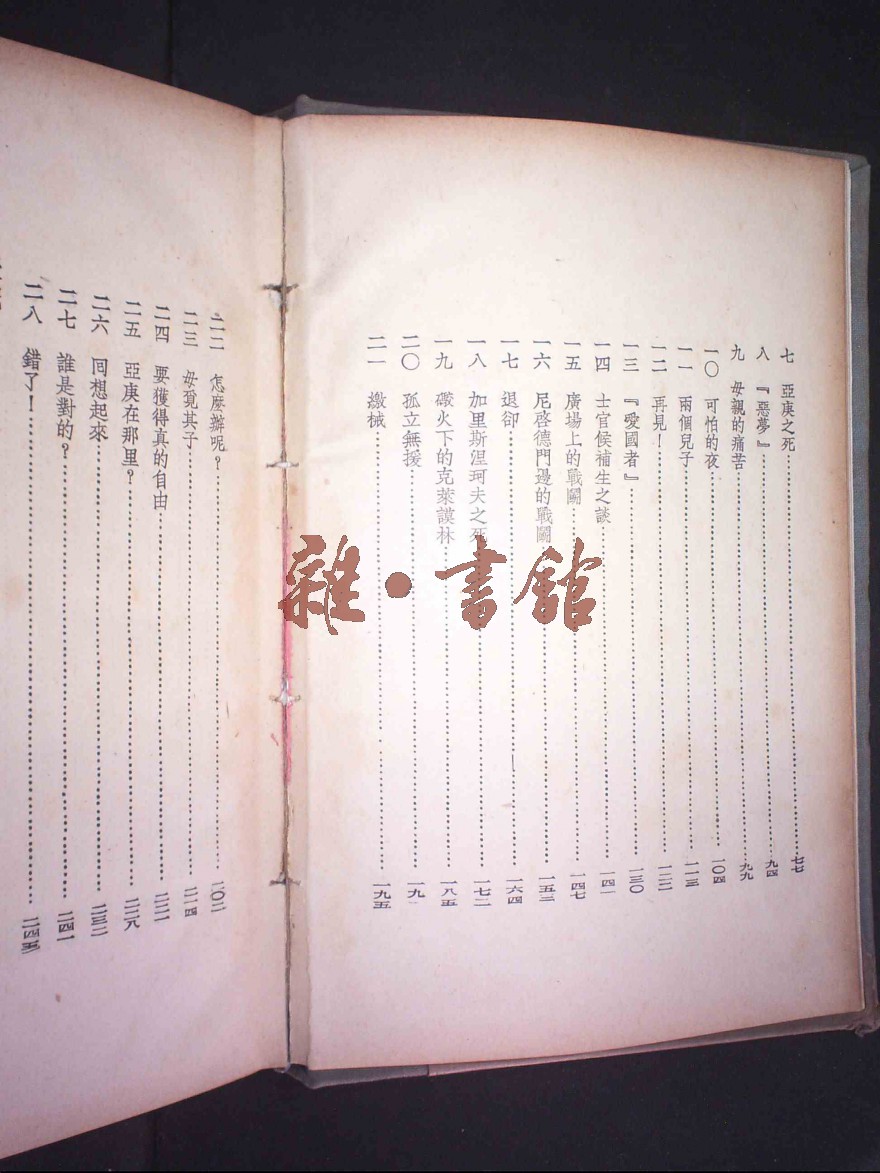 七 亞庚之死……七七
八 『惡夢』……九四
九 母親的痛苦……九九
一〇 可怕的夜……一〇四
一一 兩個兒子……一一三
一二 再見!……一二二
一三 『愛國者』……一三〇
一四 士官候補生之談……一四一
一五 廣場上的戰鬭……一四七
一六 尼啓德門邊的戰鬭……一五三
一七 退卻……一六四
一八 加里斯涅珂夫之死……一七二
一九 礮火下的克萊謨林……一八五
二〇 孤立無援……一九一
二一 繳械……一九五
二二 怎麼辦呢?……二〇二
二三 母覓其子……二一四
二四 要獲得真的自由……二二二
二五 亞庚在那里?……二二八
二六 囘想起來……二三二
二七 誰是對的?……二四一
二八 錯了!……二四五
雜·書館